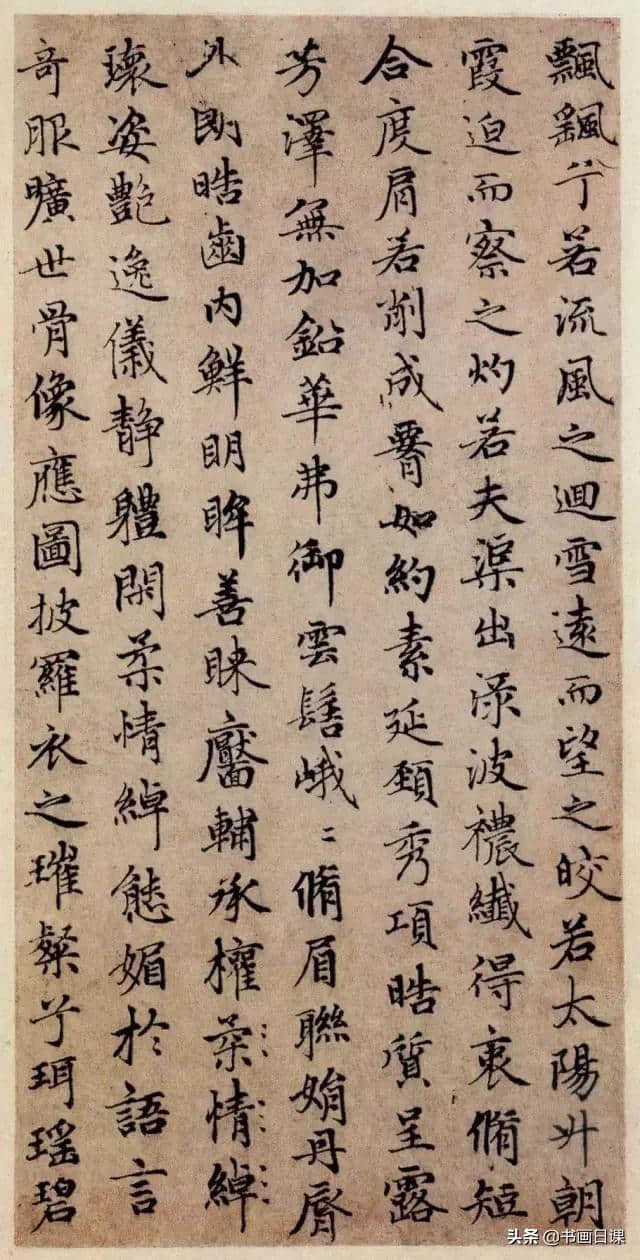 飄颻兮若流風之迴雪遠而望之皎若太陽升朝
霞迫而察之灼若夫渠出渌波襛纖得衷脩短
合度肩若削成腰如約素延頸秀項晧質呈露
芳澤無加鉛華弗御雲髻峨〻脩眉聯娟丹脣
外朗晧齒内鮮明眸善睞靨輔承權柔情綽
瓌姿艷逸儀静體閑柔情綽態媚於語言
奇服曠世骨像應圖披羅衣之璀粲兮珥瑶碧
头条@书画日课